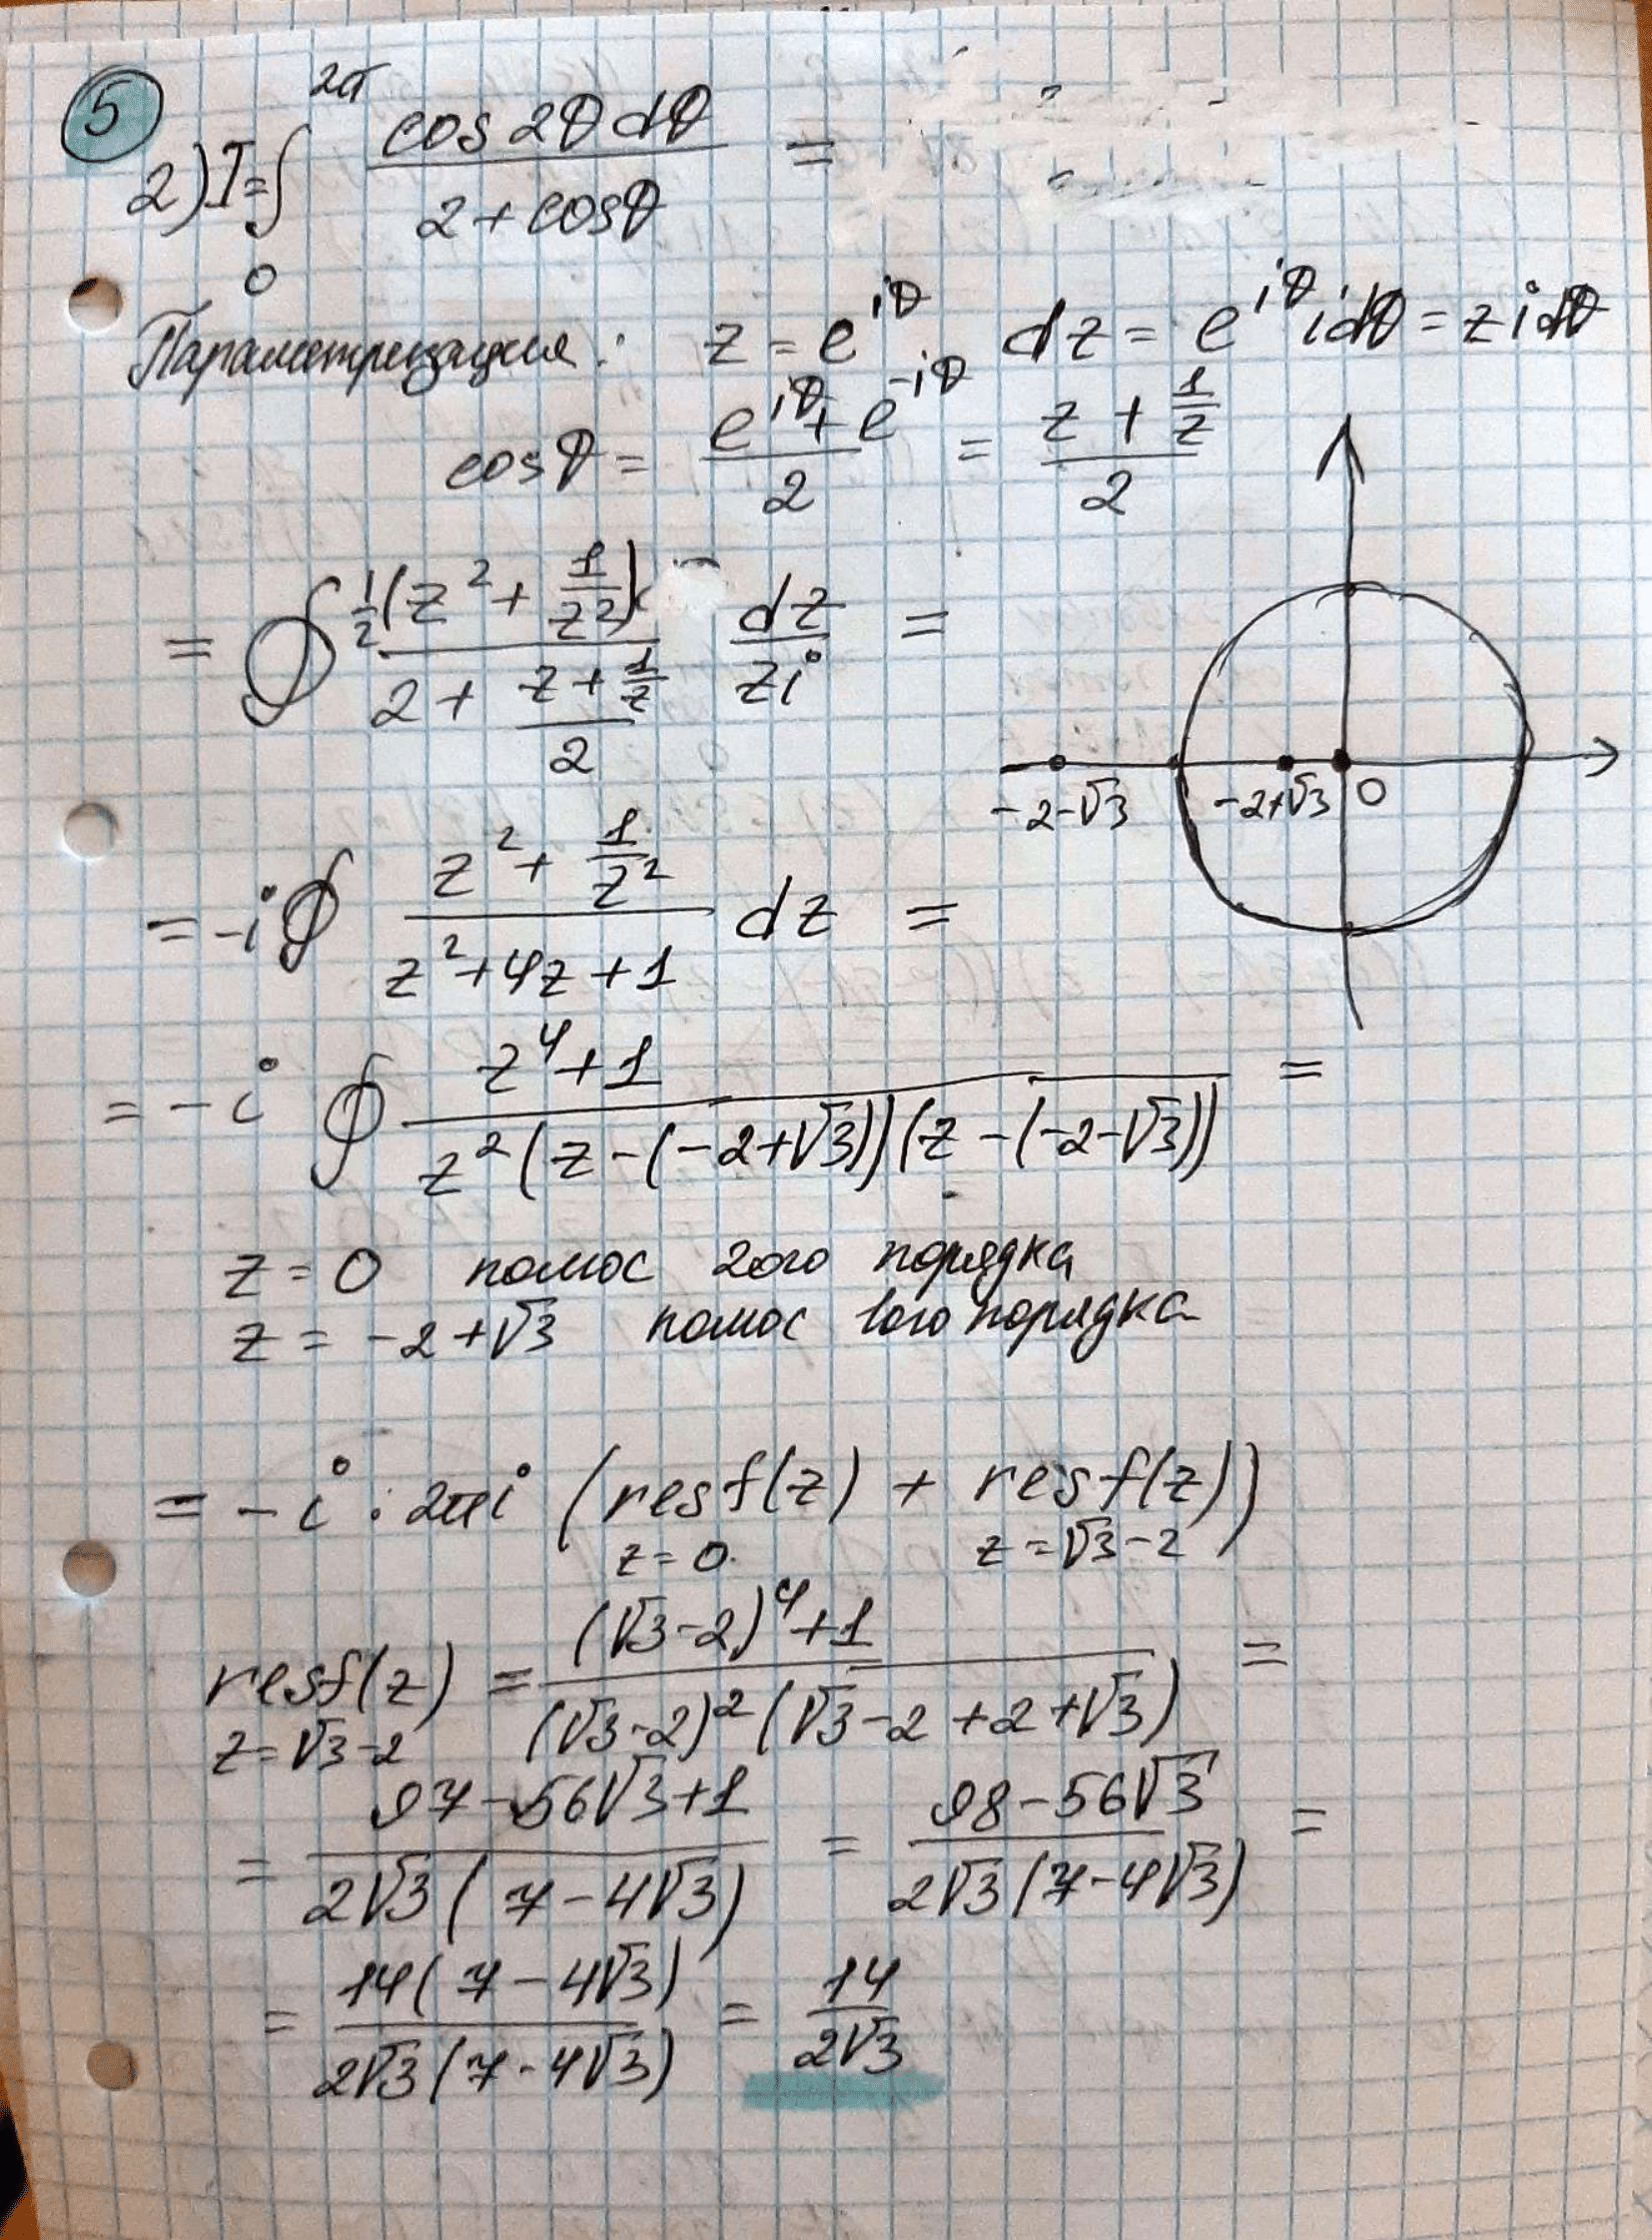 5
2) I = ∫_0^{2π} cos 2θ dθ / (2 + cosθ) =
Параметризация: z = e^{iθ} dz = e^{iθ} i dθ = z i dθ
cosθ = (e^{iθ} + e^{-iθ}) / 2 = (z + 1/z) / 2
= ∮ (1/2 (z^2 + 1/z^2)) / (2 + (z + 1/z)/2) dz/(zi) =
-2-√3 -2+√3 0
= -i ∮ (z^2 + 1/z^2) / (z^2 + 4z + 1) dz =
= -i ∮ (z^4 + 1) / (z^2 (z - (-2+√3)) (z - (-2-√3))) =
z = 0 полюс 2ого порядка
z = -2 + √3 полюс 1ого порядка
= -i · 2πi (res f(z) + res f(z))
z = 0. z = √3 - 2
res f(z) = ((√3-2)^4 + 1) / ((√3-2)^2 (√3 - 2 + 2 + √3)) =
z = √3 - 2
= (97 - 56√3 + 1) / (2√3 (7 - 4√3)) = (98 - 56√3) / (2√3 (7 - 4√3)) =
= 14(7 - 4√3) / (2√3 (7 - 4√3)) = 14 / (2√3)